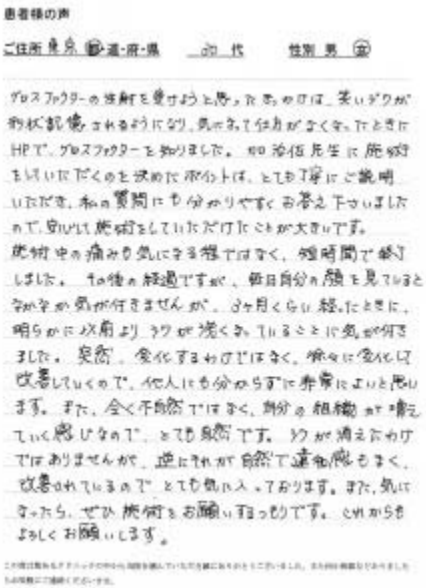 患者様の声
ご住所 東京 都・道・府・県 20 代 性別 男 女
グロスファクターの注射を受けようと思ったきっかけは、笑いジワが
形状記憶されるようになり、気になって仕方がなくなったときに
HPで、グロスファクターを知りました。加治佐先生に施術
をしていただくのを決めたポイントは、とても丁寧にご説明
いただき、私の質問にも分かりやすくお答え下さいました
ので、安心して施術をしていただけたことが大きいです。
施術中の痛みも気になる程ではなく、短時間で終了
しました。その後の経過ですが、毎日自分の顔を見ていると
なかなか気が付きませんが、3ヶ月くらい経ったときに、
明らかに以前よりシワが浅くなっていることに気が付き
ました。突然、変化するわけではなく、徐々に変化して
改善していくので、他人にも分からずに非常によいと思い
ます。また、全く不自然ではなく、自分の組織が増え
ていく感じなので、とても自然です。シワが消えたわけ
ではありませんが、逆にそれが自然で違和感もなく、
改善されているのでとても気に入っております。また、気に
なったら、ぜひ施術をお願いするつもりです。これからも
よろしくお願いします。